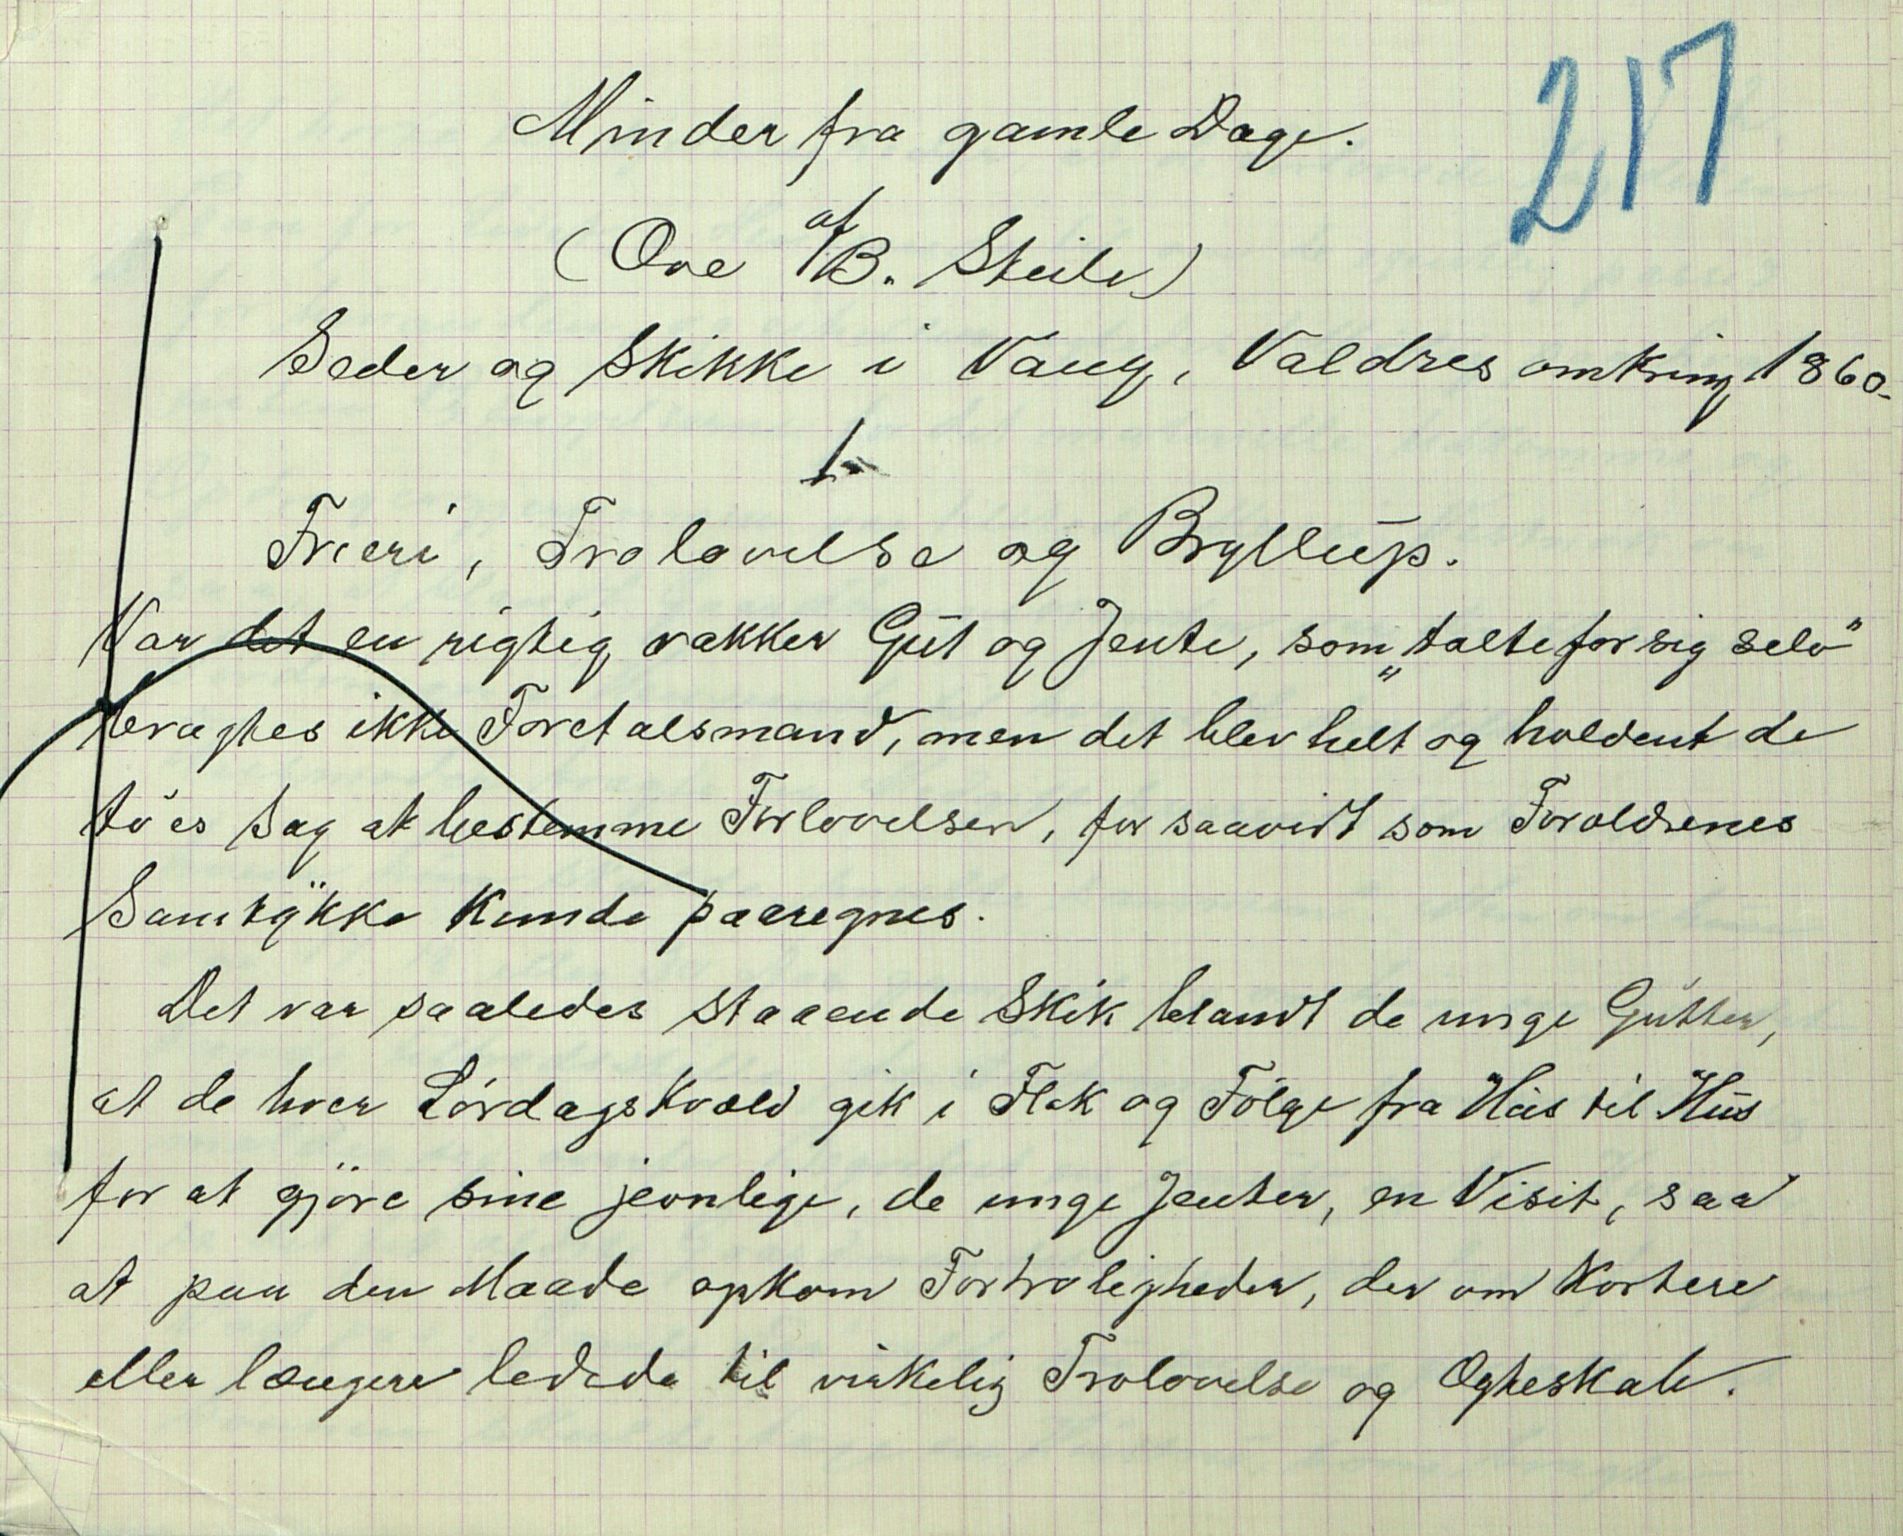 217
Minder fra gamle Dage.
(Ove af B. Steile)
Seder og Skikke i Vang, Valdres omkring 1860.
1.
Frieri, Trolovelse og Bryllup.
Var det en rigtig vakker Gut og Jente, som „talte for sig selv"
brugtes ikke Foretalsmand, men det blev helt og holdent de
to's Sag at bestemme Forlovelsen, for saavidt som Forældrenes
Samtykke kunde paaregnes.
Det var saaledes staaende Skik blandt de unge Gutter,
at de hver Lørdagskvæld gik i Flok og Følge fra Hus til Hus
for at gjöre sine jevnlige, de unge Jenter, en Visit, saa
at paa den Maade opkom Fortroligheder, der om kortere
eller længere ledede til virkelig Trolovelse og Ægteskab.